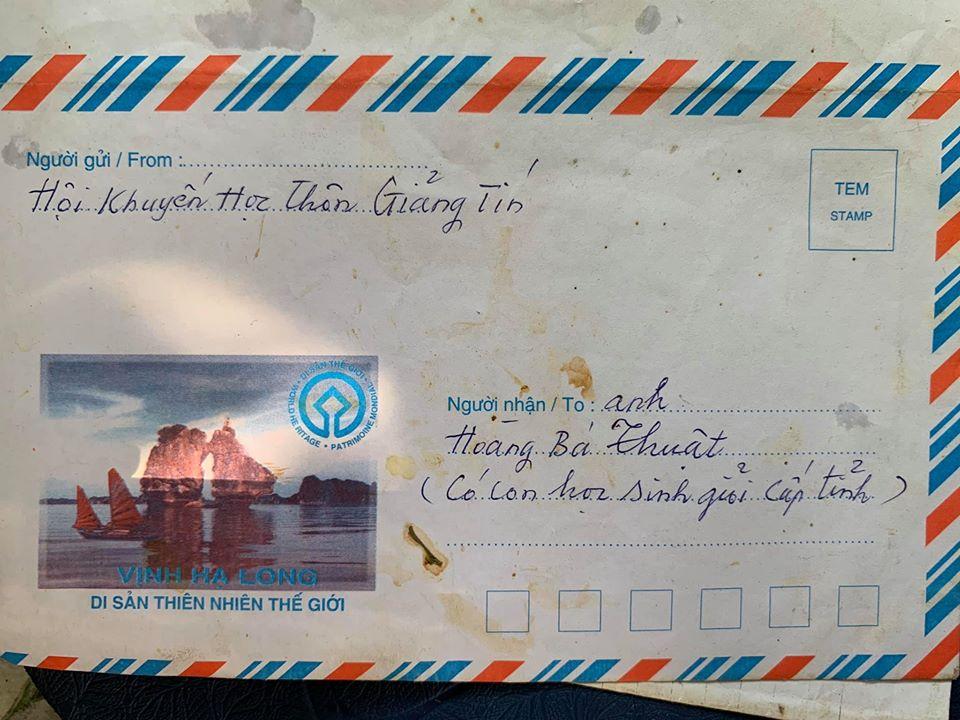 Người gửi / From :
Hội Khuyến Học Thôn Giảng Tín
TEM
STAMP
DI SẢN THẾ GIỚI • WORLD HERITAGE • PATRIMOINE MONDIAL
Người nhận / To : anh
Hoàng Bá Thuật
( Có con học sinh giỏi cấp tỉnh )
VỊNH HẠ LONG
DI SẢN THIÊN NHIÊN THẾ GIỚI